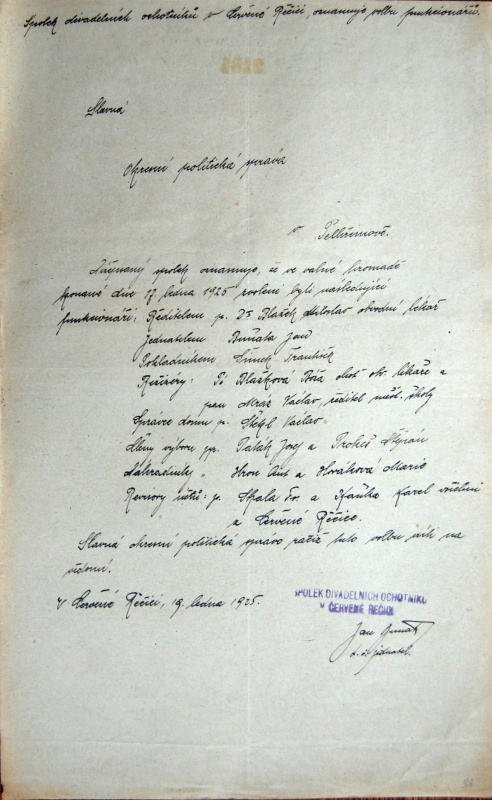 Spolek divadelních ochotníků v Červené Řečici oznamuje volbu funkcionářů.
Slavná
Okresní politická správa
v
Pelhřimově.
spolek oznamuje, že ve valné hromadě
konané dne 17. ledna 1925 zvoleni byli následující
funkcionáři: Ředitelem p. Dr Blažek Miloslav obvodní lékař
Jednatelem Buňata Jan
Pokladníkem Šimek František
Režiséry: Pí Blažková Bóža choť ob. lékaře a
pan Mráz Václav, ředitel měšť. školy
Správce domu p. Václav
Členy výboru pp. Josef a Prokeš
Náhradníky " Hron Ant. a Horáková Marie
Revisory účtů: p. Skala Fr. a Karel všichni
z Červené Řečice.
Slavná okresní politická správo račiž tuto volbu vzíti na
vědomí.
V Červené Řečici, 19. ledna 1925.
SPOLEK DIVADELNÍCH OCHOTNÍKŮ
V ČERVENÉ ŘEČICI
Jan
t. č. jednatel.